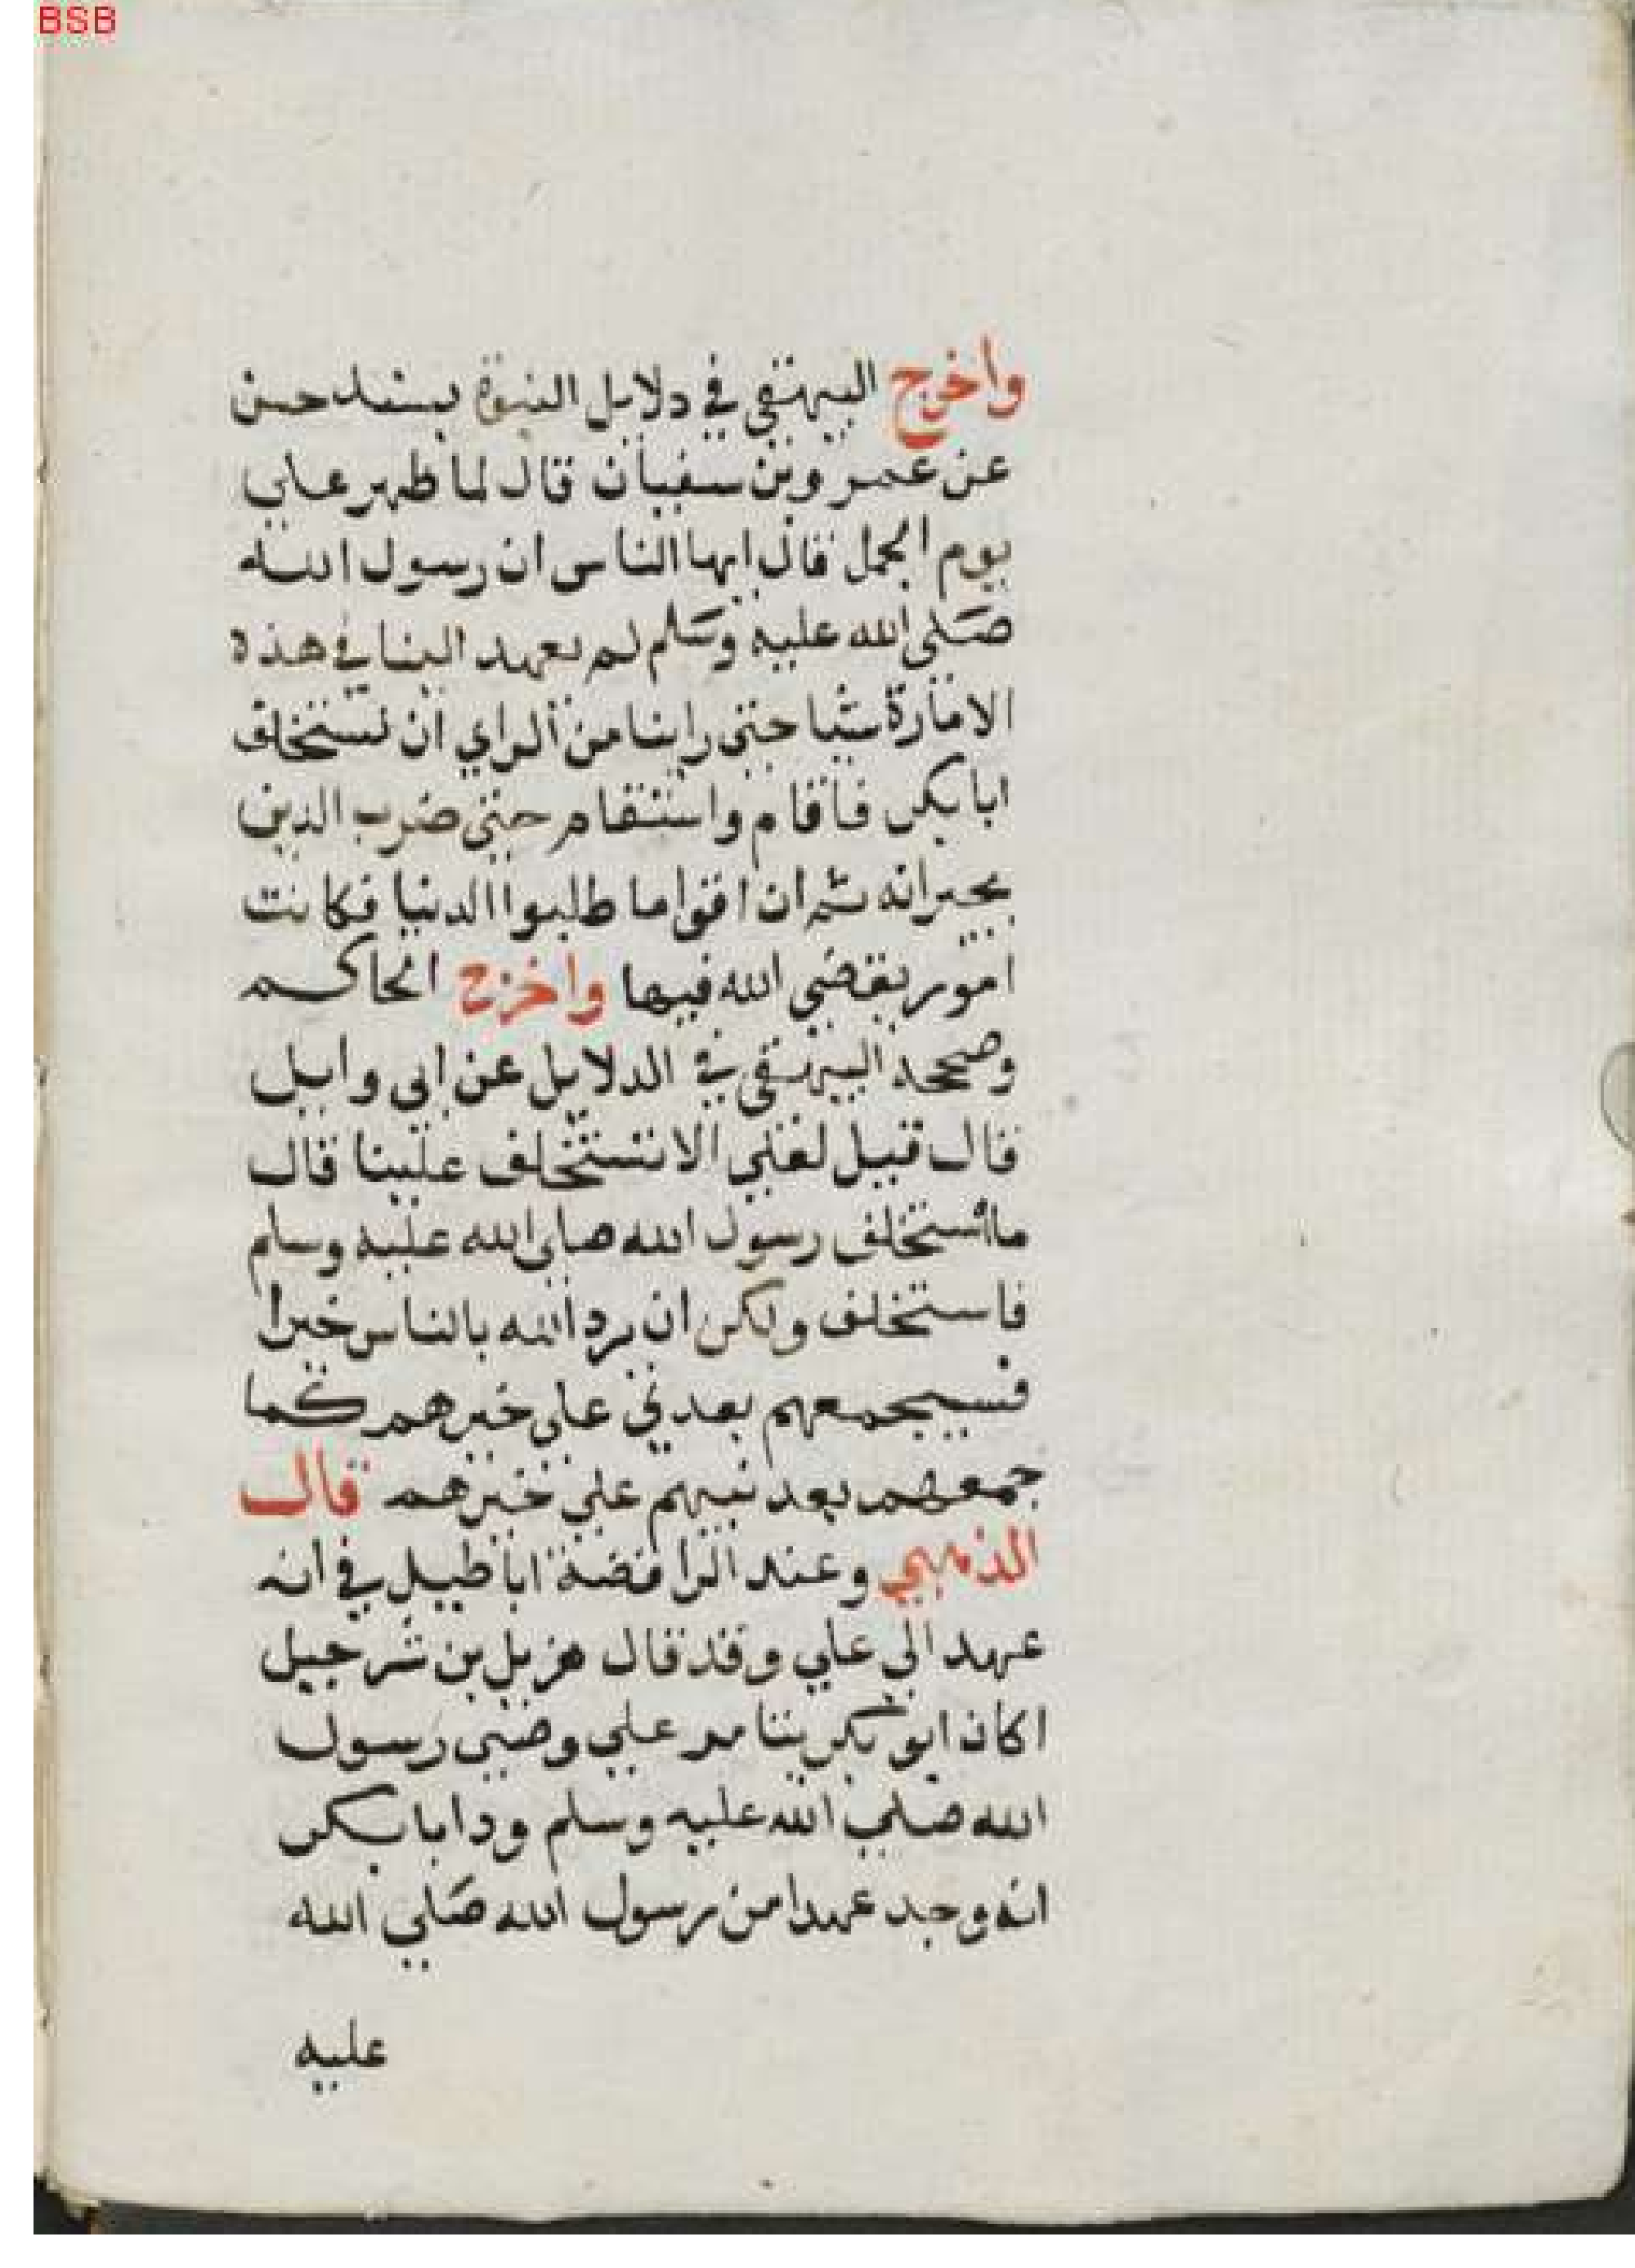 BSB
واخرج البيهقي في دلايل النبوة بسند حسن
عن عمرو بن سفيان قال لما ظهر علي
يوم الجمل قال ايها الناس ان رسول الله
صلي الله عليه وسلم لم يعهد الينا في هذه
الامارة شيا حتي راينا من الراي ان نستخلف
ابا بكر فاقام واستقام حتي ضرب الدين
بجيرانه ثم ان اقواما طلبوا الدنيا فكانت
امور يقضي الله فيها واخرج الحاكم
وصححه البيهقي في الدلايل عن ابي وايل
قال قيل لعلي الا تستخلف علينا قال
ما استخلف رسول الله صلي الله عليه وسلم
فاستخلف ولكن ان يرد الله بالناس خيرا
فسيجمعهم بعدي علي خيرهم كما
جمعهم بعد نبيهم علي خيرهم قال
الذهبي وعند الرافضة اباطيل في انه
عهد الي علي وقد قال هزيل بن شرجيل
اكان ابو بكر يتامر علي وصي رسول
الله صلي الله عليه وسلم ود ابا بكر
انه وجد عهدا من رسول الله صلي الله
عليه